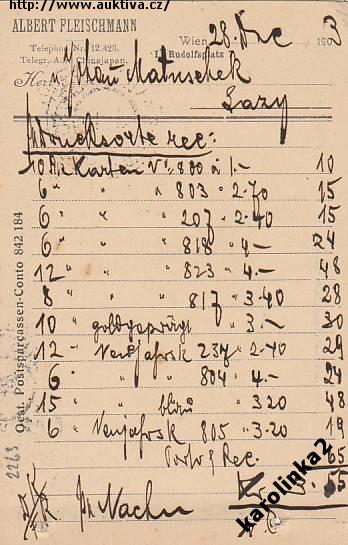 https://www.auktiva.cz/
ALBERT FLEISCHMANN
Telephon Nr. 12.428.
Telegr.-Adr. Chinajapan.
Wien, 28. Dec 1903
I., Rudolfsplatz
Herrn
Matuschek
Lazy
Drucksorte rec:
10 Pk Karten No 800 à 1.— 10
6 " " 803 " 2.70 15
6 " " 207 " 2.40 15
6 " " 818 " 4.— 24
12 " " 823 " 4.— 48
8 " " 817 " 3.40 28
10 " goldgeprägt " 3.— 30
12 " Neujahrsk 237 " 2.40 29
6 " " 804 " 4.— 24
15 " " blau " 3.20 48
6 " Neujahrsk 805 " 3.20 19
Porto & Rec. 65
K 3.55
pr Nachn
Oest. Postsparcassen-Conto 842 184
2263
karolinka2